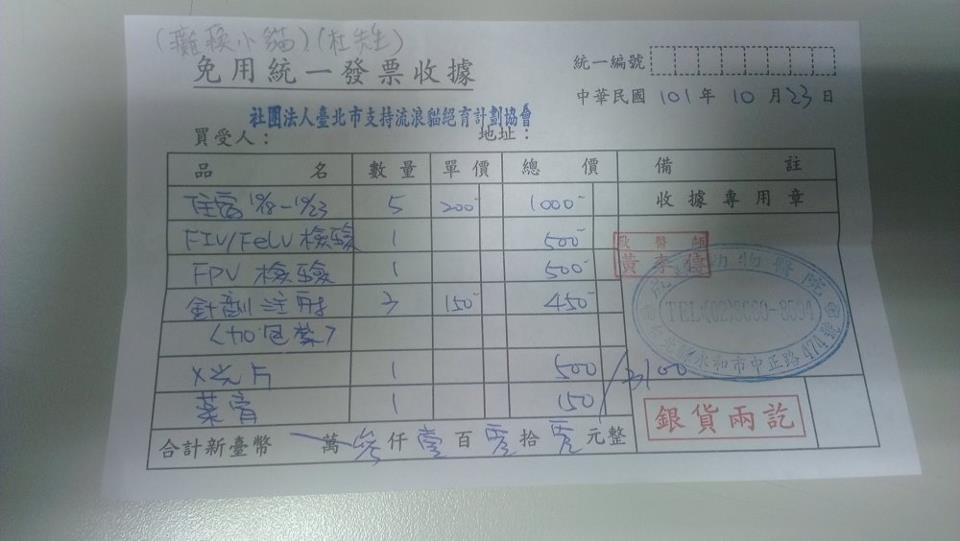 (癱瘓小貓)(杜先生)
免用統一發票收據
統一編號
中華民國 101 年 10 月 23 日
社團法人臺北市支持流浪貓絕育計劃協會
買受人: 地址:
品名 數量 單價 總價 備註
收據專用章
住宿 10/18-10/23 5 200- 1000-
FIV/FeLV 檢驗 1 500-
FPV 檢驗 1 500-
針劑注射 3 150- 450-
(加包藥)
X光片 1 500
藥膏 1 150 / 3100
動物醫院
TEL:(02)8660-8594
永和市中正路474號
銀貨兩訖
合計新臺幣 萬 叁 仟 壹 百 零 拾 零 元整